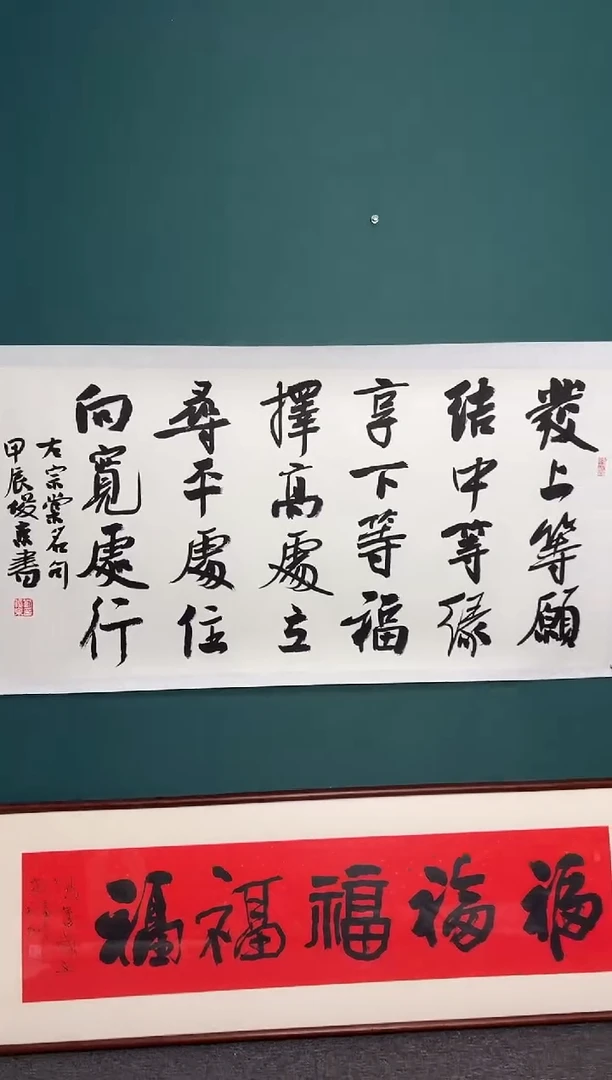 發上等願
結中等緣
享下等福
擇高處立
尋平處住
向寬處行
左宗棠名句
甲辰 書
福
福
福
福
福